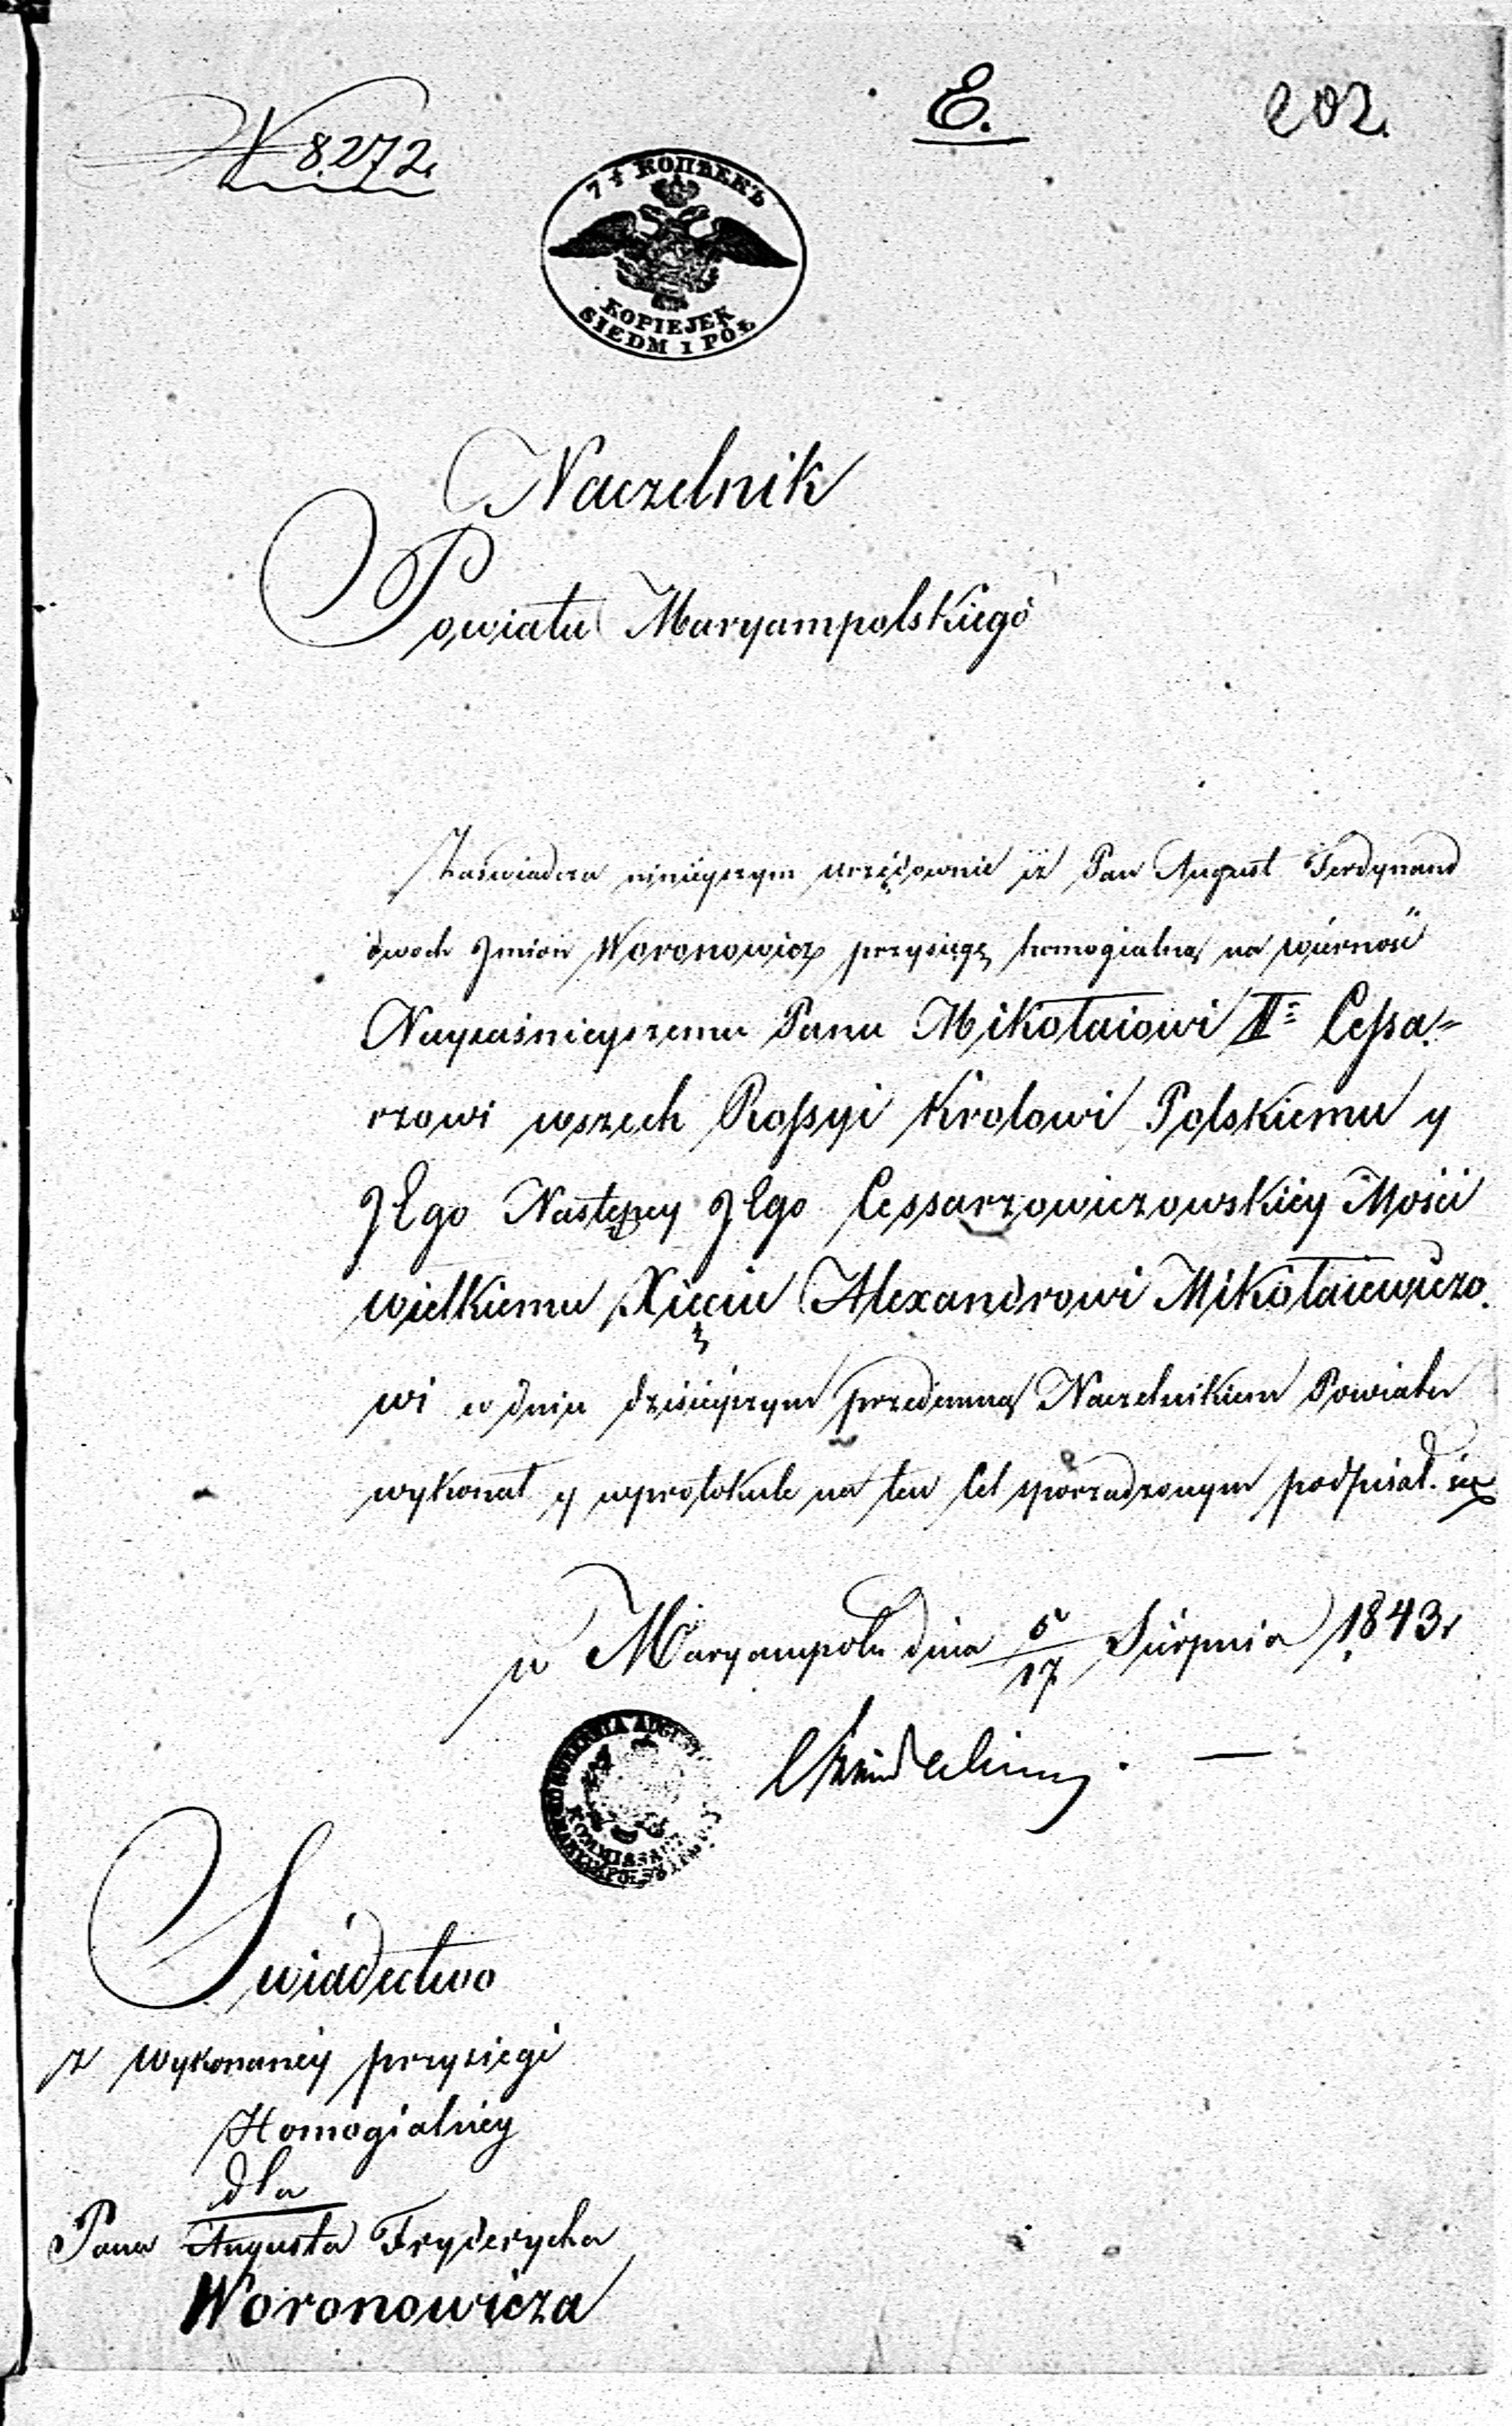 N 8272.
E.
202.
7½ КОПѢЕКЪ
KOPIEJEK
SIEDM I PÓŁ
Naczelnik
Powiatu Maryampolskiego
Zaświadcza ninieyszym urzędownie iż Pan August Ferdynand
dwoch Jmion Woronowicz przysięgę homogialną na wierność
Nayiaśnieyszemu Panu Mikołaiowi II Cessa=
rzowi wszech Rossyi Krolowi Polskiemu y
JEgo Następcy JEgo Cessarzowiczowskiéy Mości
wielkiemu Xięciu Alexandrowi Mikołaiewiczo
wi w dniu dzisieyszym przedemną Naczelnikiem Powiatu
wykonał y wprotokule na ten Cel sporządzonym podpisał się
w Maryampolu dnia 5/17 Sierpnia 1843r
GUBERNIA AUGUST
KOMMISSARZ
Swiadectwo
z wykonaney przysięgi
Homogialney
dla
Pana Augusta Fryderycha
Woronowicza